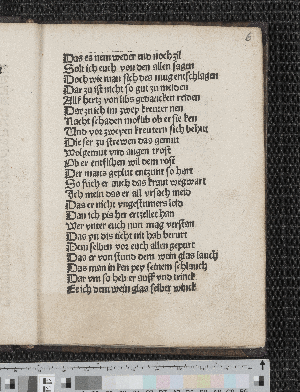 6
Das es nem weder end noch zil
Solt ich euch von den allen sagen
Doch wie man sich des mug entschlagen
Dar zu ist nicht so gut zu melden
All hertz von libs gedancken reiden
Dar zu ich im zwey kreuter nen
Nacht schaden moslib ob er sie ken
Und vor zweyen kreutern sich behut
Die ser zu strewen das gemut
Wolgemut vnd augen trost
Ob er entslichen wil dem rost
Der mans geplut entzunt so hart
So fuch er auch das kraut wegwart
Ich mein das er all vrsach meid
Das er nicht vngestumers leid
Dan ich pis her erzellet han
Wer vnter euch nun mag versten
Das yn des nicht nit hab berurt
Dem selben vor euch allen gepurt
Das er von stund dem wein glas lauch
Das man in ken pey seinem schlauch
Dar vm so heb er auff vnd trinck
E ich dem wein glas selber winck